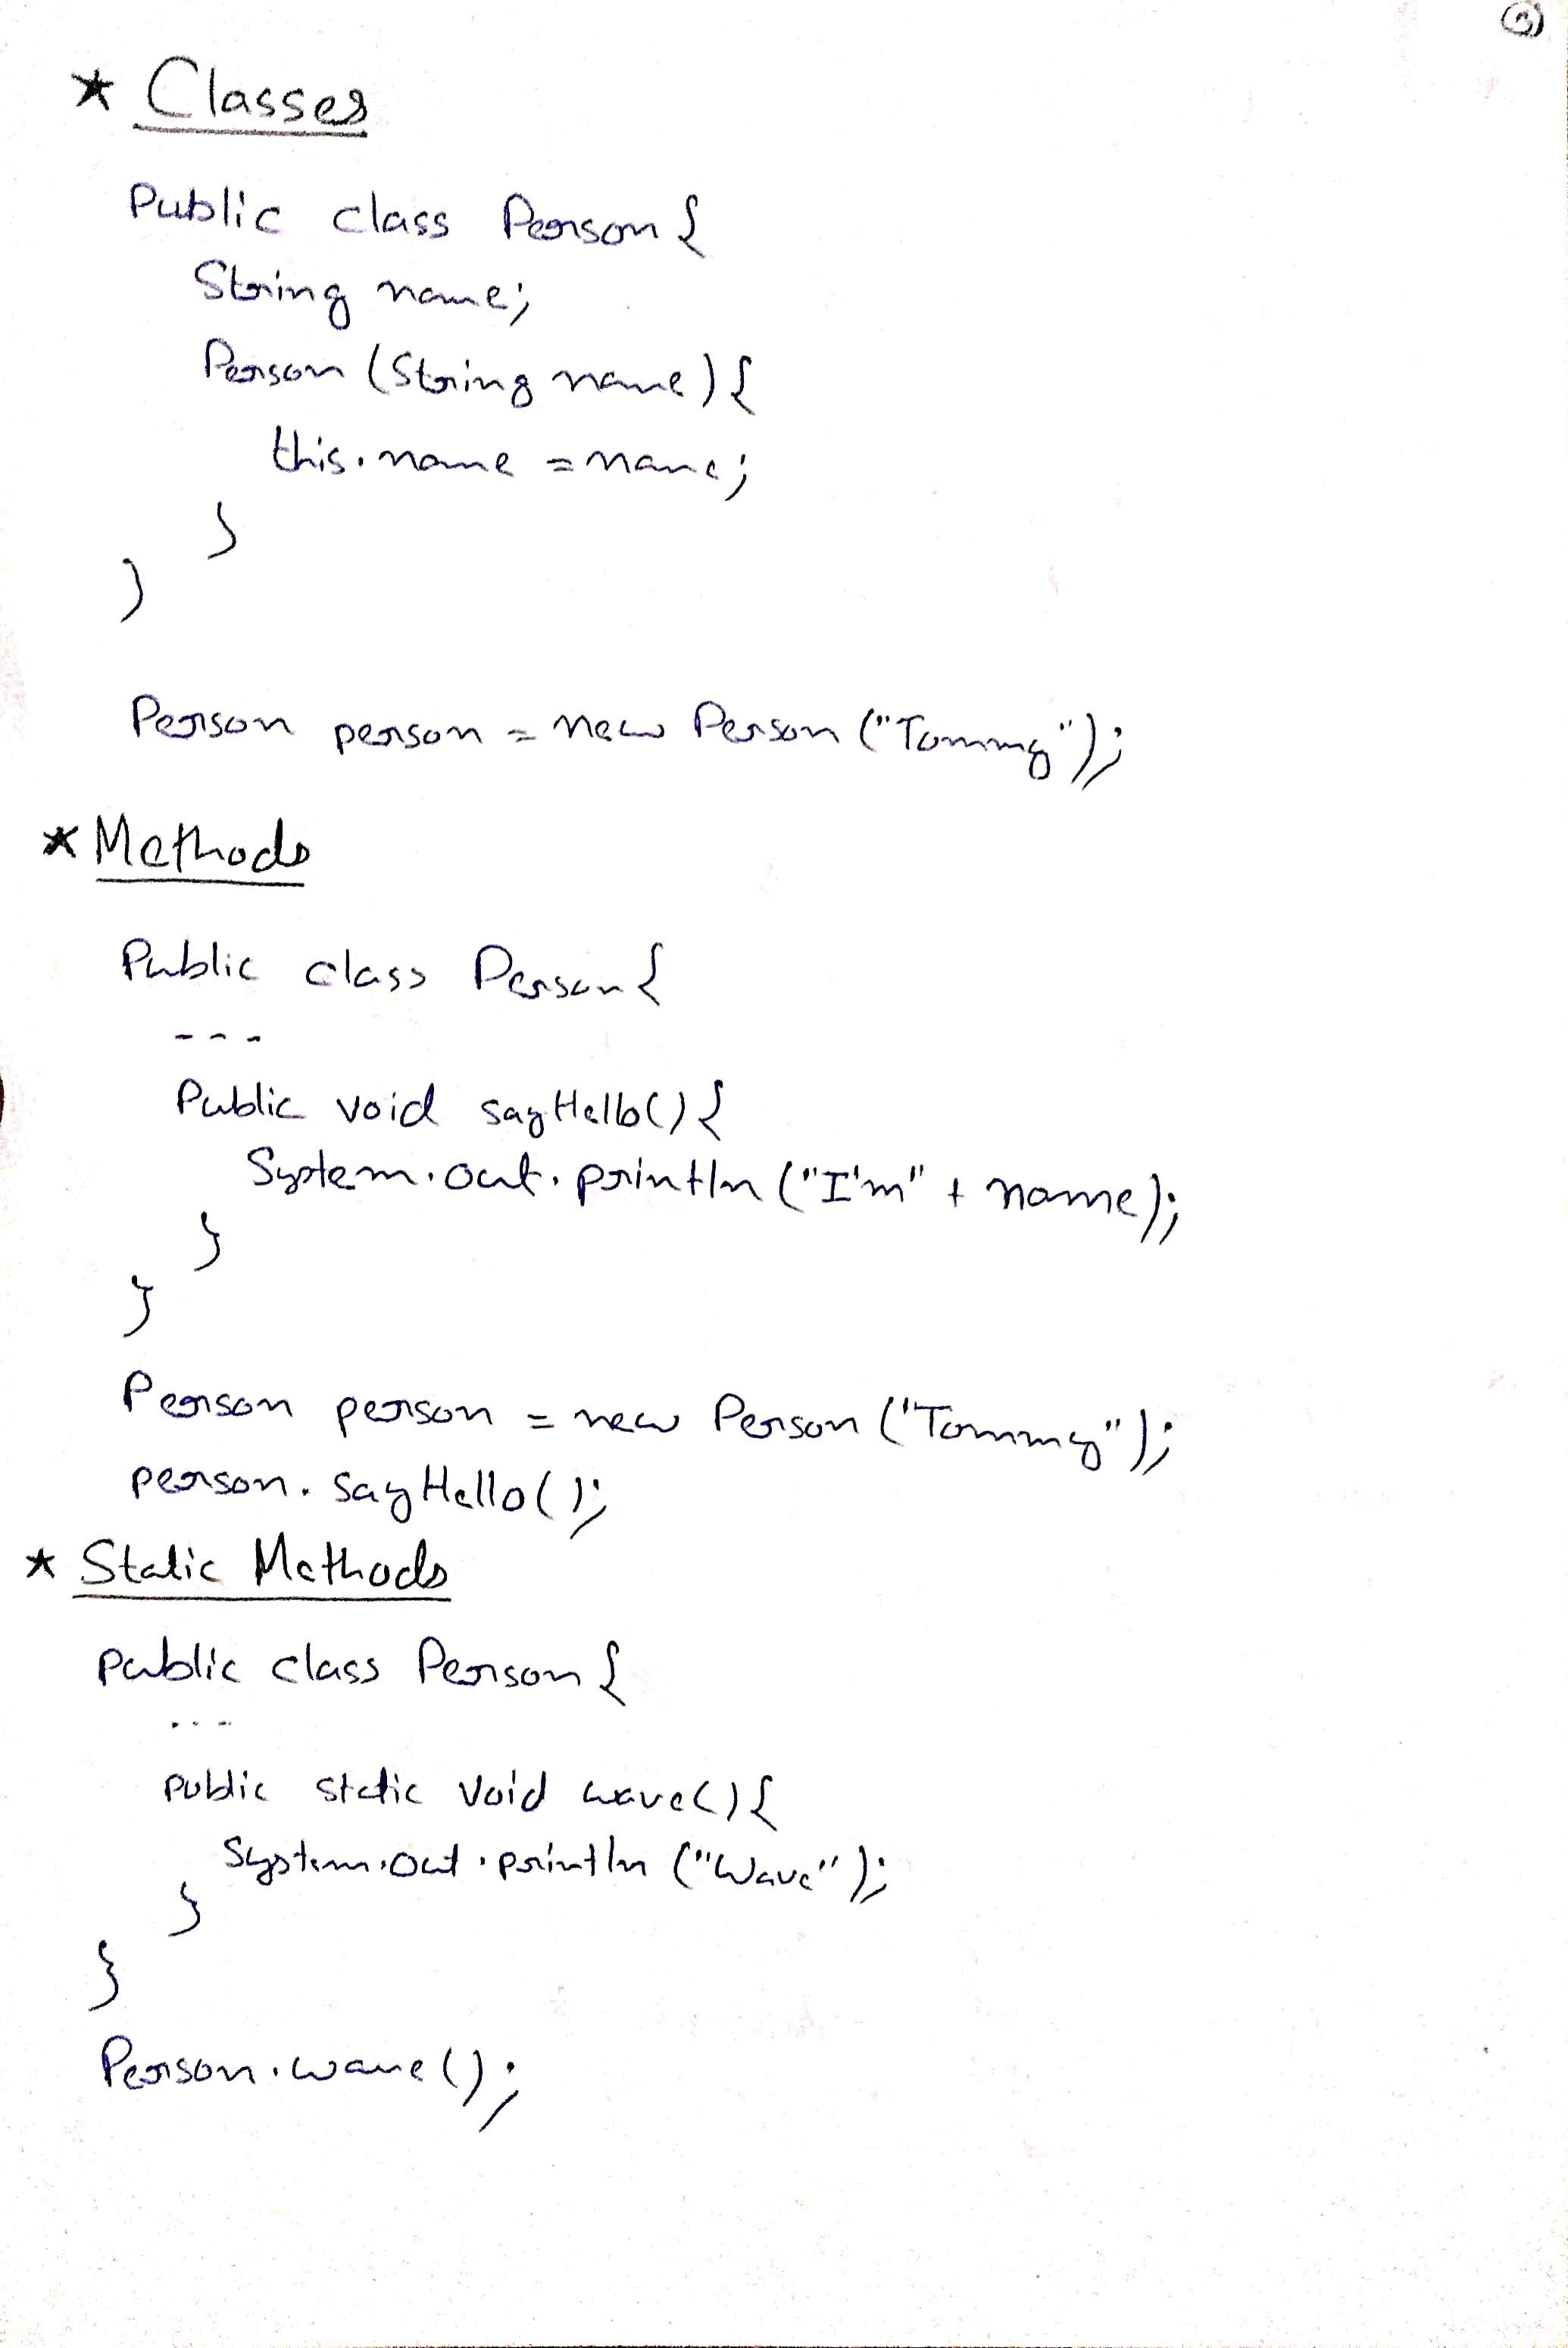 3
* Classes
Public class Person {
String name;
Person (String name) {
this.name = name;
}
}
Person person = new Person ("Tommy");
* Methods
Public class Person {
---
Public void sayHello() {
System.out.println ("I'm" + name);
}
}
Person person = new Person ("Tommy");
person.sayHello();
* Static Methods
public class Person {
...
public static void wave() {
System.out.println ("Wave");
}
}
Person.wave();